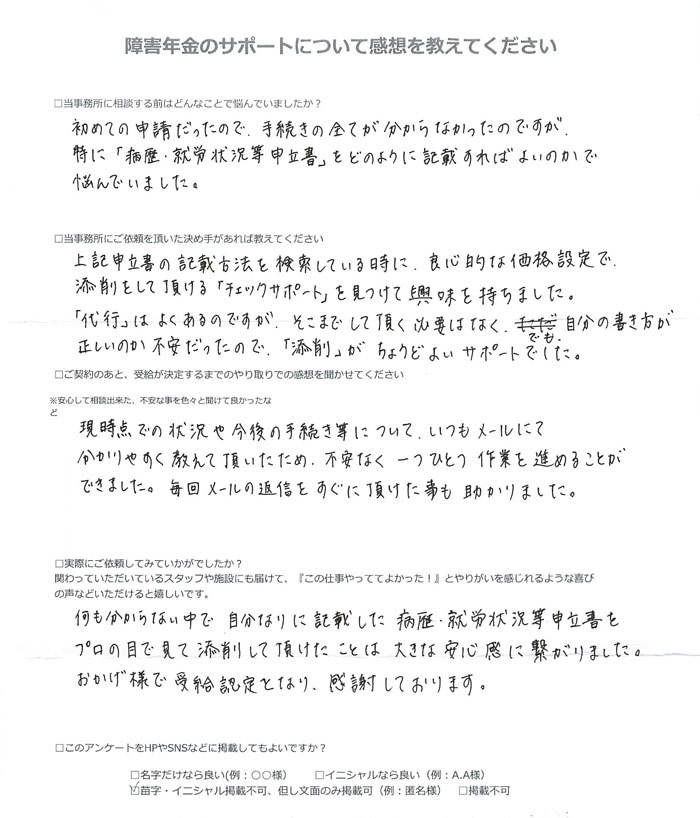 障害年金のサポートについて感想を教えてください
□当事務所に相談する前はどんなことで悩んでいましたか？
初めての申請だったので、手続きの全てが分からなかったのですが、
特に「病歴・就労状況等申立書」をどのように記載すればよいのかで
悩んでいました。
□当事務所にご依頼を頂いた決め手があれば教えてください
上記申立書の記載方法を検索している時に、良心的な価格設定で、
添削をして頂ける「チェックサポート」を見つけて興味を持ちました。
「代行」はよくあるのですが、そこまでして頂く必要はなく、でも、自分の書き方が
正しいのか不安だったので、「添削」がちょうどよいサポートでした。
□ご契約のあと、受給が決定するまでのやり取りでの感想を聞かせてください
※安心して相談出来た、不安な事を色々と聞けて良かったな
ど
現時点での状況や今後の手続き等について、いつもメールにて
分かりやすく教えて頂いたため、不安なく一つひとつ作業を進めることが
できました。毎回メールの返信をすぐに頂けた事も助かりました。
□実際にご依頼してみていかがでしたか？
関わっていただいているスタッフや施設にも届けて、『この仕事やっててよかった！』とやりがいを感じれるような喜び
の声などいただけると嬉しいです。
何も分からない中で自分なりに記載した病歴・就労状況等申立書を
プロの目で見て添削して頂けたことは大きな安心感に繋がりました。
おかげ様で受給認定となり、感謝しております。
□このアンケートをHPやSNSなどに掲載してもよいですか？
□名字だけなら良い(例：○○様） □イニシャルなら良い（例：A.A様）
☑苗字・イニシャル掲載不可、但し文面のみ掲載可（例：匿名様） □掲載不可